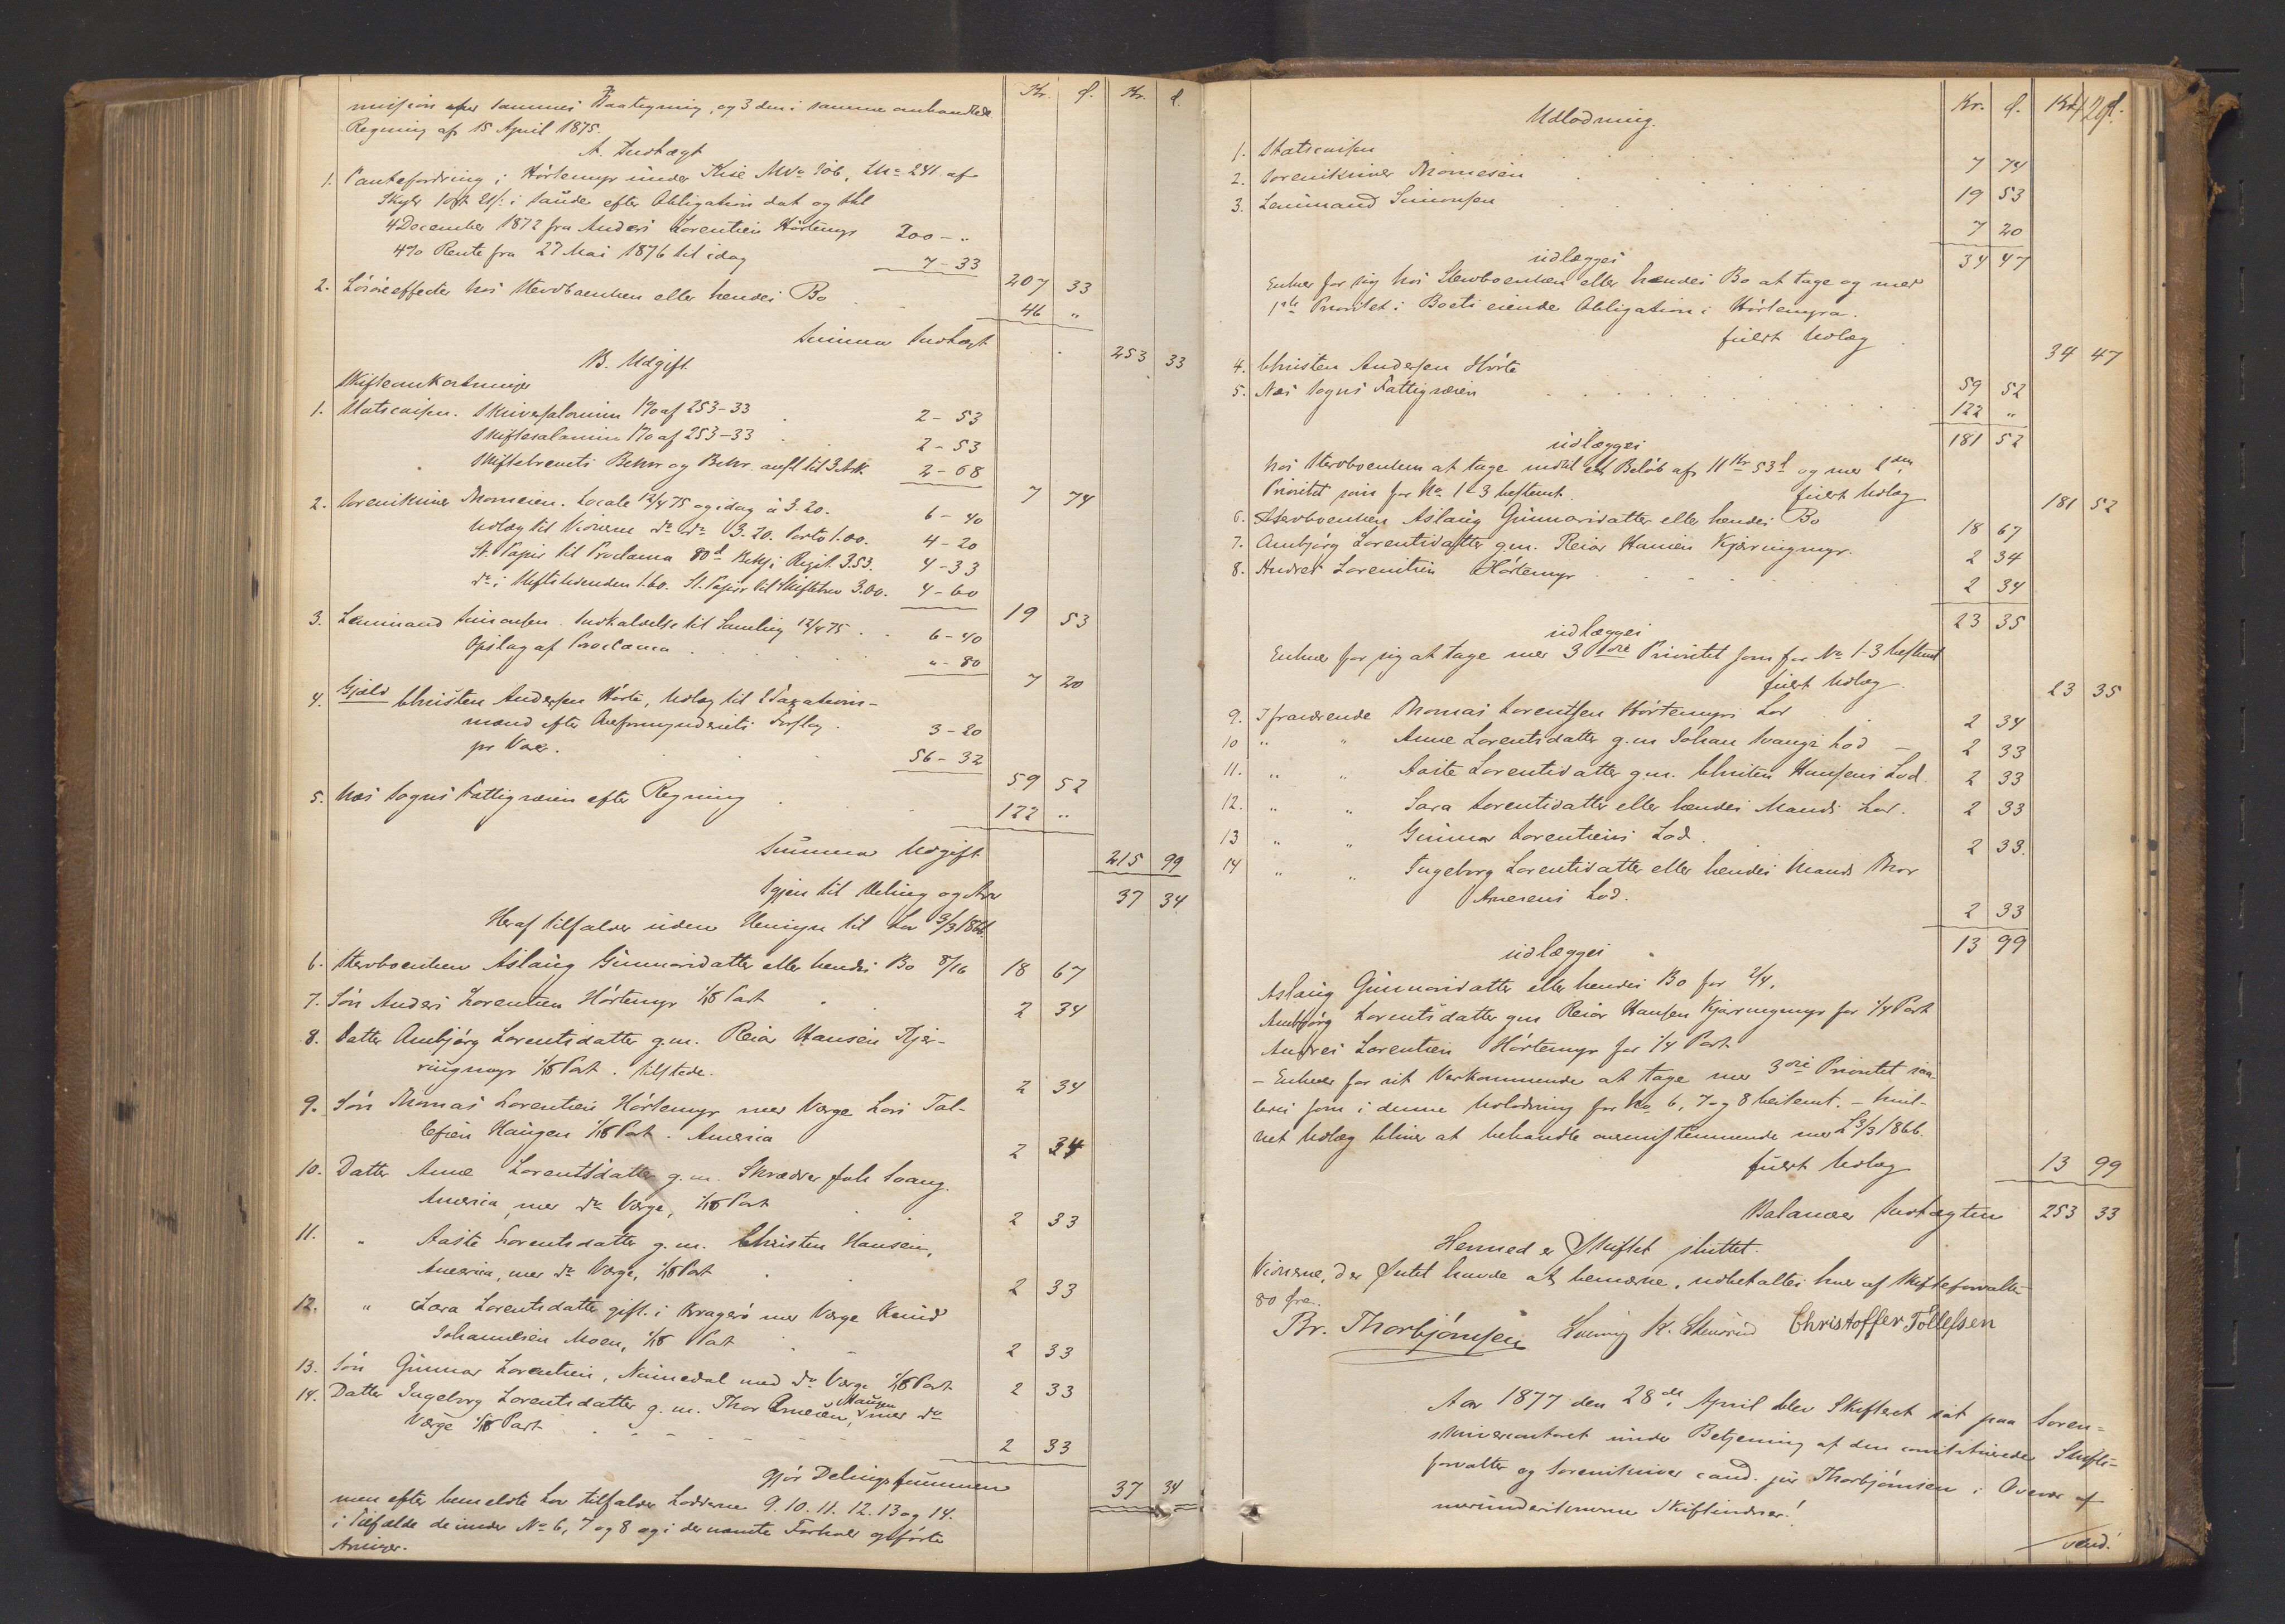 Kr. Ø. Kr. Ø.
mission efter sammes Paategning, og 3 den i samme omhandlede
Regning af 15 April 1875.
A. Indtægt
1. Pantefordring i Hörtemyr under Kise M No 106, L No 241 af
Skyld 1 ort 21 s: i Saude efter Obligation dat og thl
4 December 1872 fra Anders Lorentsen Hörtemyr 200 - "
4% Rente fra 27 Mai 1876 til idag 7 - 33
207 33
2. Lösöreeffecter hos Stervboenken eller hendes Bo 46 "
Summa Indtægt 253 33
B. Udgift
Skifteomkostninger
1. Statscassen. Skriversalarium 1% af 253-33 2 - 53
Skiftesalarium 1% af 253-33 2 - 53
Skiftebrevets Beskr og Bekr. ansl til 3 Ark 2 - 68
7 74
2. Sorenskriver Thomesen. Locale 12/4 75 og idag á 3.20. 6 - 40
Udlæg til Vidnerne do do 3.20. Porto 1.00. 4 - 20
St. Papir til Proclama 80 Ø Bekj i Rigst. 3.53. 4 - 33
do i Stiftstidenden 1.60. St. Papir til Skiftebrev 3.00. 4 - 60
19 53
3. Lensmand Simonsen. Indkaldelse til Samling 12/4 75 . . 6 - 40
Opslag af Proclama . . " - 80
7 20
4. Gjæld Christen Andersen Hörte, Udlæg til 2 Taxations-
mænd efter Overformynderiets Forslag . 3 - 20
pr Varer. 56 - 32
59 52
5. Næs Sogns Fattigvæsen efter Regning . 122 "
Summa Udgift 215 99
Igjen til Deling og Arv 37 34
Heraf tilfalder uden Hensyn til Lov 3/3 1866.
6. Stervboenken Aslaug Gunnarsdatter eller hendes Bo 8/16 18 67
7. Sön Anders Lorentsen Hörtemyr 1/16 Part 2 34
8. Datter Anbjörg Lorentsdatter g.m. Reiar Hansen Kjær-
ringmyr 1/16 Part. tilstede. 2 34
9. Sön Thomas Lorentsen Hörtemyr med Værge Lars Tal-
lefsen Haugen 1/16 Part. America 2 34
10. Datter Anne Lorentsdatter g.m. Skrædder Joh Svang.
America, med do Værge, 1/16 Part 2 33
11. " Aaste Lorentsdatter g.m. Christen Hansen,
America, med do Værge, 1/16 Part 2 33
12. " Sara Lorentsdatter gift i Kragerö med Værge Knud
Johannesen Moen, 1/16 Part 2 33
13. Sön Gunnar Lorentsen, Numedal med do Værge 1/16 Part 2 33
14. Datter Ingeborg Lorentsdatter g.m. Thor Arnesen, Haugen med do
Værge 1/16 Part 2 33
gjör Delingssummen 37 34
men efter bemeldte Lov tilfalder Lodderne 9. 10. 11. 12. 13 og 14.
i Tilfælde de under No 6, 7 og 8 og i der nævnte Forhold opförte
Arvinger.
Kr. Ø. Kr. Ø.
Udlodning.
1. Statscassen 7 74
2. Sorenskriver Thomesen 19 53
3. Lensmand Simonsen 7 20
34 47
udlægges
Enhver for sig hos Stervboenken eller hendes Bo at tage og med
1ste Prioritet i Boets eiende Obligation i Hörtemyra.
fuldt Udlæg 34 47
4. Christen Andersen Hörte 59 52
5. Næs Sogns Fattigvæsen 122 "
181 52
udlægges
hos Stervboenken at tage indtil et Belöb af 11 Kr 53 Ø og med 2den
Prioritet som for No. 1-3 bestemt. fuldt Udlæg 181 52
6. Stervboenken Aslaug Gunnarsdatter eller hendes Bo 18 67
7. Anbjörg Lorentsdatter g.m. Reiar Hansen Kjærringmyr. 2 34
8. Anders Lorentsen Hörtemyr 2 34
23 35
udlægges
Enhver for sig at tage med 3die Prioritet som for No 1-3 bestemt
fuldt Udlæg. 23 35
9. Ifraværende Thomas Lorentsen Hörtemyrs Lod 2 34
10 " " Anne Lorentsdatter g.m Johan Svangs Lod - 2 33
11. " " Aaste Lorentsdatter g.m. Christen Hansens Lod. 2 33
12. " " Sara Lorentsdatter eller hendes Mands Lod. 2 33
13 " " Gunnar Lorentsens Lod. 2 33.
14 " " Ingeborg Lorentsdatter eller hendes Mands Thor
Arnesens Lod. 2 33
13 99
udlægges
Aslaug Gunnarsdatter eller hendes Bo for 2/4,
Anbjörg Lorentsdatter gm Reiar Hansen Kjærringmyr for 1/4 Part
Anders Lorentsen Hörtemyr for 1/4 Part
- Enhver for sit Vedkommende at tage med 3die Prioritet saa-
ledes som i denne Udlodning for No 6, 7 og 8 bestemt. - hvil-
ket Udlæg bliver at behandle overensstemmende med L 3/3 1866.
fuldt Udlæg 13 99
Balancer Indtægten 253 33
Hermed er Skiftet sluttet.
Vidnerne, der Intet havde at bemærke, udbetaltes hver af Skifteforvalter
80 Øre.
Br. Thorbjörnsen Ludvig K. Christoffer Tollefsen
Aar 1877 den 28de April blev Skifteret sat paa Soren-
skrivercontoret under Betjening af den constituerede Skifte-
forvalter og Sorenskriver cand. jur Thorbjörnsen i Overvær af
medunderskrevne Skiftevidner!
vend.